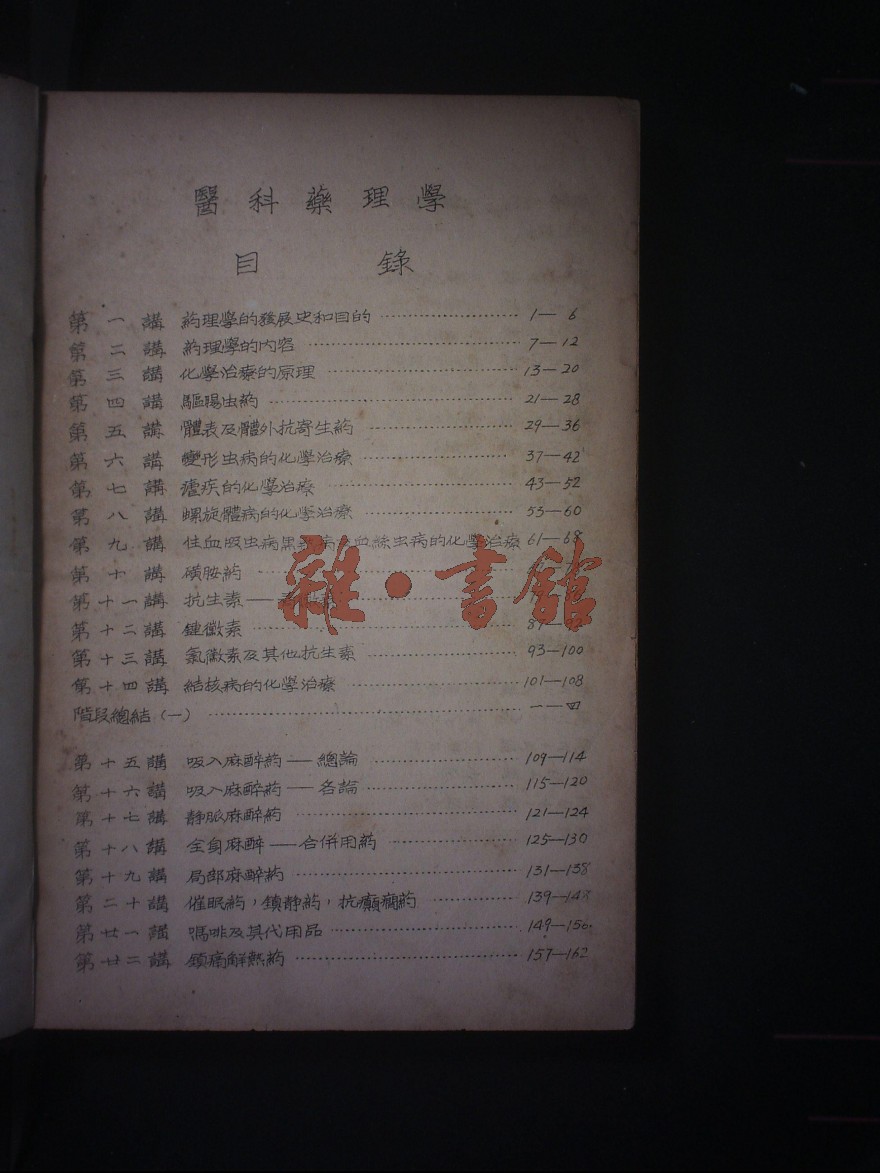 醫科藥理學
目錄
第一講 葯理學的發展史和目的 1—6
第二講 葯理學的内容 7—12
第三講 化學治療的原理 13—20
第四講 驅腸虫葯 21—28
第五講 體表及體外抗寄生葯 29—36
第六講 變形虫病的化學治療 37—42
第七講 瘧疾的化學治療 43—52
第八講 螺旋體病的化學治療 53—60
第九講 住血吸虫病黑熱病血絲虫病的化學治療 61—68
第十講 磺胺葯
第十一講 抗生素——
第十二講 鏈黴素
第十三講 氯黴素及其他抗生素 93—100
第十四講 結核病的化學治療 101—108
階段總結(一) 一—四
第十五講 吸入麻醉葯——總論 109—114
第十六講 吸入麻醉葯——各論 115—120
第十七講 靜脈麻醉葯 121—124
第十八講 全身麻醉——合併用葯 125—130
第十九講 局部麻醉葯 131—138
第二十講 催眠葯，鎮靜葯，抗癲癇葯 139—148
第廿一講 嗎啡及其代用品 149—156
第廿二講 鎮痛解熱葯 157—162
雜·書館